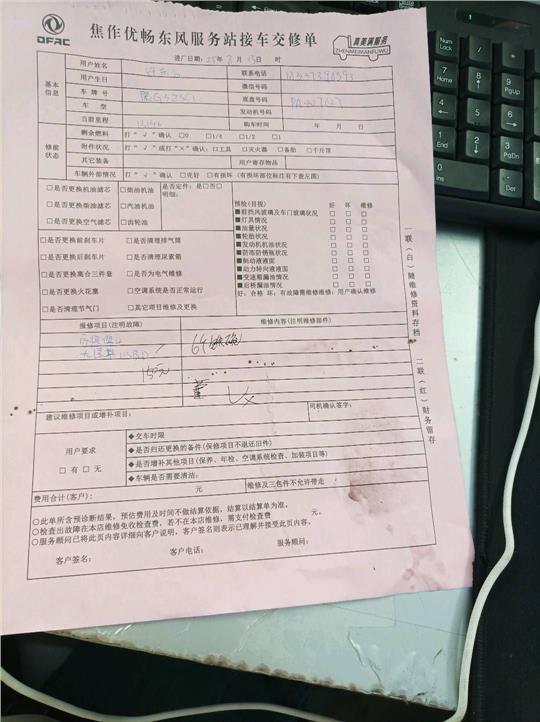 DFAC
焦作优畅东风服务站接车交修单
真美满服务
ZHENMEIMANFUWU
进厂日期: 25年8月13日 时
基本信息
用户姓名
联系电话
用户生日
微信号码
车牌号
底盘号码
车型
发动机号码
当前里程
购车时间 年 月 日
修前状态
剩余燃料 打“√”确认 □0 □1/4 □1/2 □1
附件状况 打“√”或打“×”确认:□工具 □灭火器 □备胎 □千斤顶
其它装备 用户寄存物品
车辆外部情况 打“√”确认 □完好 □有损坏(有损坏部位标注有下表左图)
□是否更换机油滤芯 □柴油机油 是否定件:是□否□
明细:
□是否更换柴油滤芯 □汽油机油
□是否更换空气滤芯 □齿轮油
预检(目视) 好 坏 维修
■前挡风玻璃及车门玻璃状况 □ □ □
■灯具情况 □ □ □
■油量状况 □ □ □
■轮胎状况 □ □ □
■发动机机油状况 □ □ □
■防冻防锈瓶状况 □ □ □
■制动液液面 □ □ □
■动力转向液液面 □ □ □
■变速箱漏油情况 □ □ □
■后桥漏油情况 □ □ □
好:合格 坏:有故障需维修维修:用户确认维修
□是否更换前刹车片 □是否清理排气筒
□是否更换后刹车片 □是否清理尿素箱
□是否更换离合三件套 □是否为电气维修
□是否更换火花塞 □空调系统是否正常运行
□是否清理节气门 □其它项目维修及更换
报修项目(注明故障) 维修内容(注明维修部件)
150元
建议维修项目或增补项目: 司机确认签字:
用户要求
□有 □无
◆交车时限
◆是否归还更换的备件(保修项目不退还旧件)
◆是否增补其他项目(保养、年检、空调系统检查、加装项目等)
◆车辆是否需要清洁:
费用合计(客户): 元 维修及三包件不允许带走
○此单所含预诊断结果,预估费用及时间不做结算依据,结算以结算单为准。
○检查出故障在本店维修免收检查费,若不在本店维修,需支付检查费 元。
○服务顾问已将此页内容详细向客户说明,客户签名则表示已理解并接受此页内容。
客户签名: 客户电话: 服务顾问:
一联(白)随维修资料存档
二联(红)财务留存